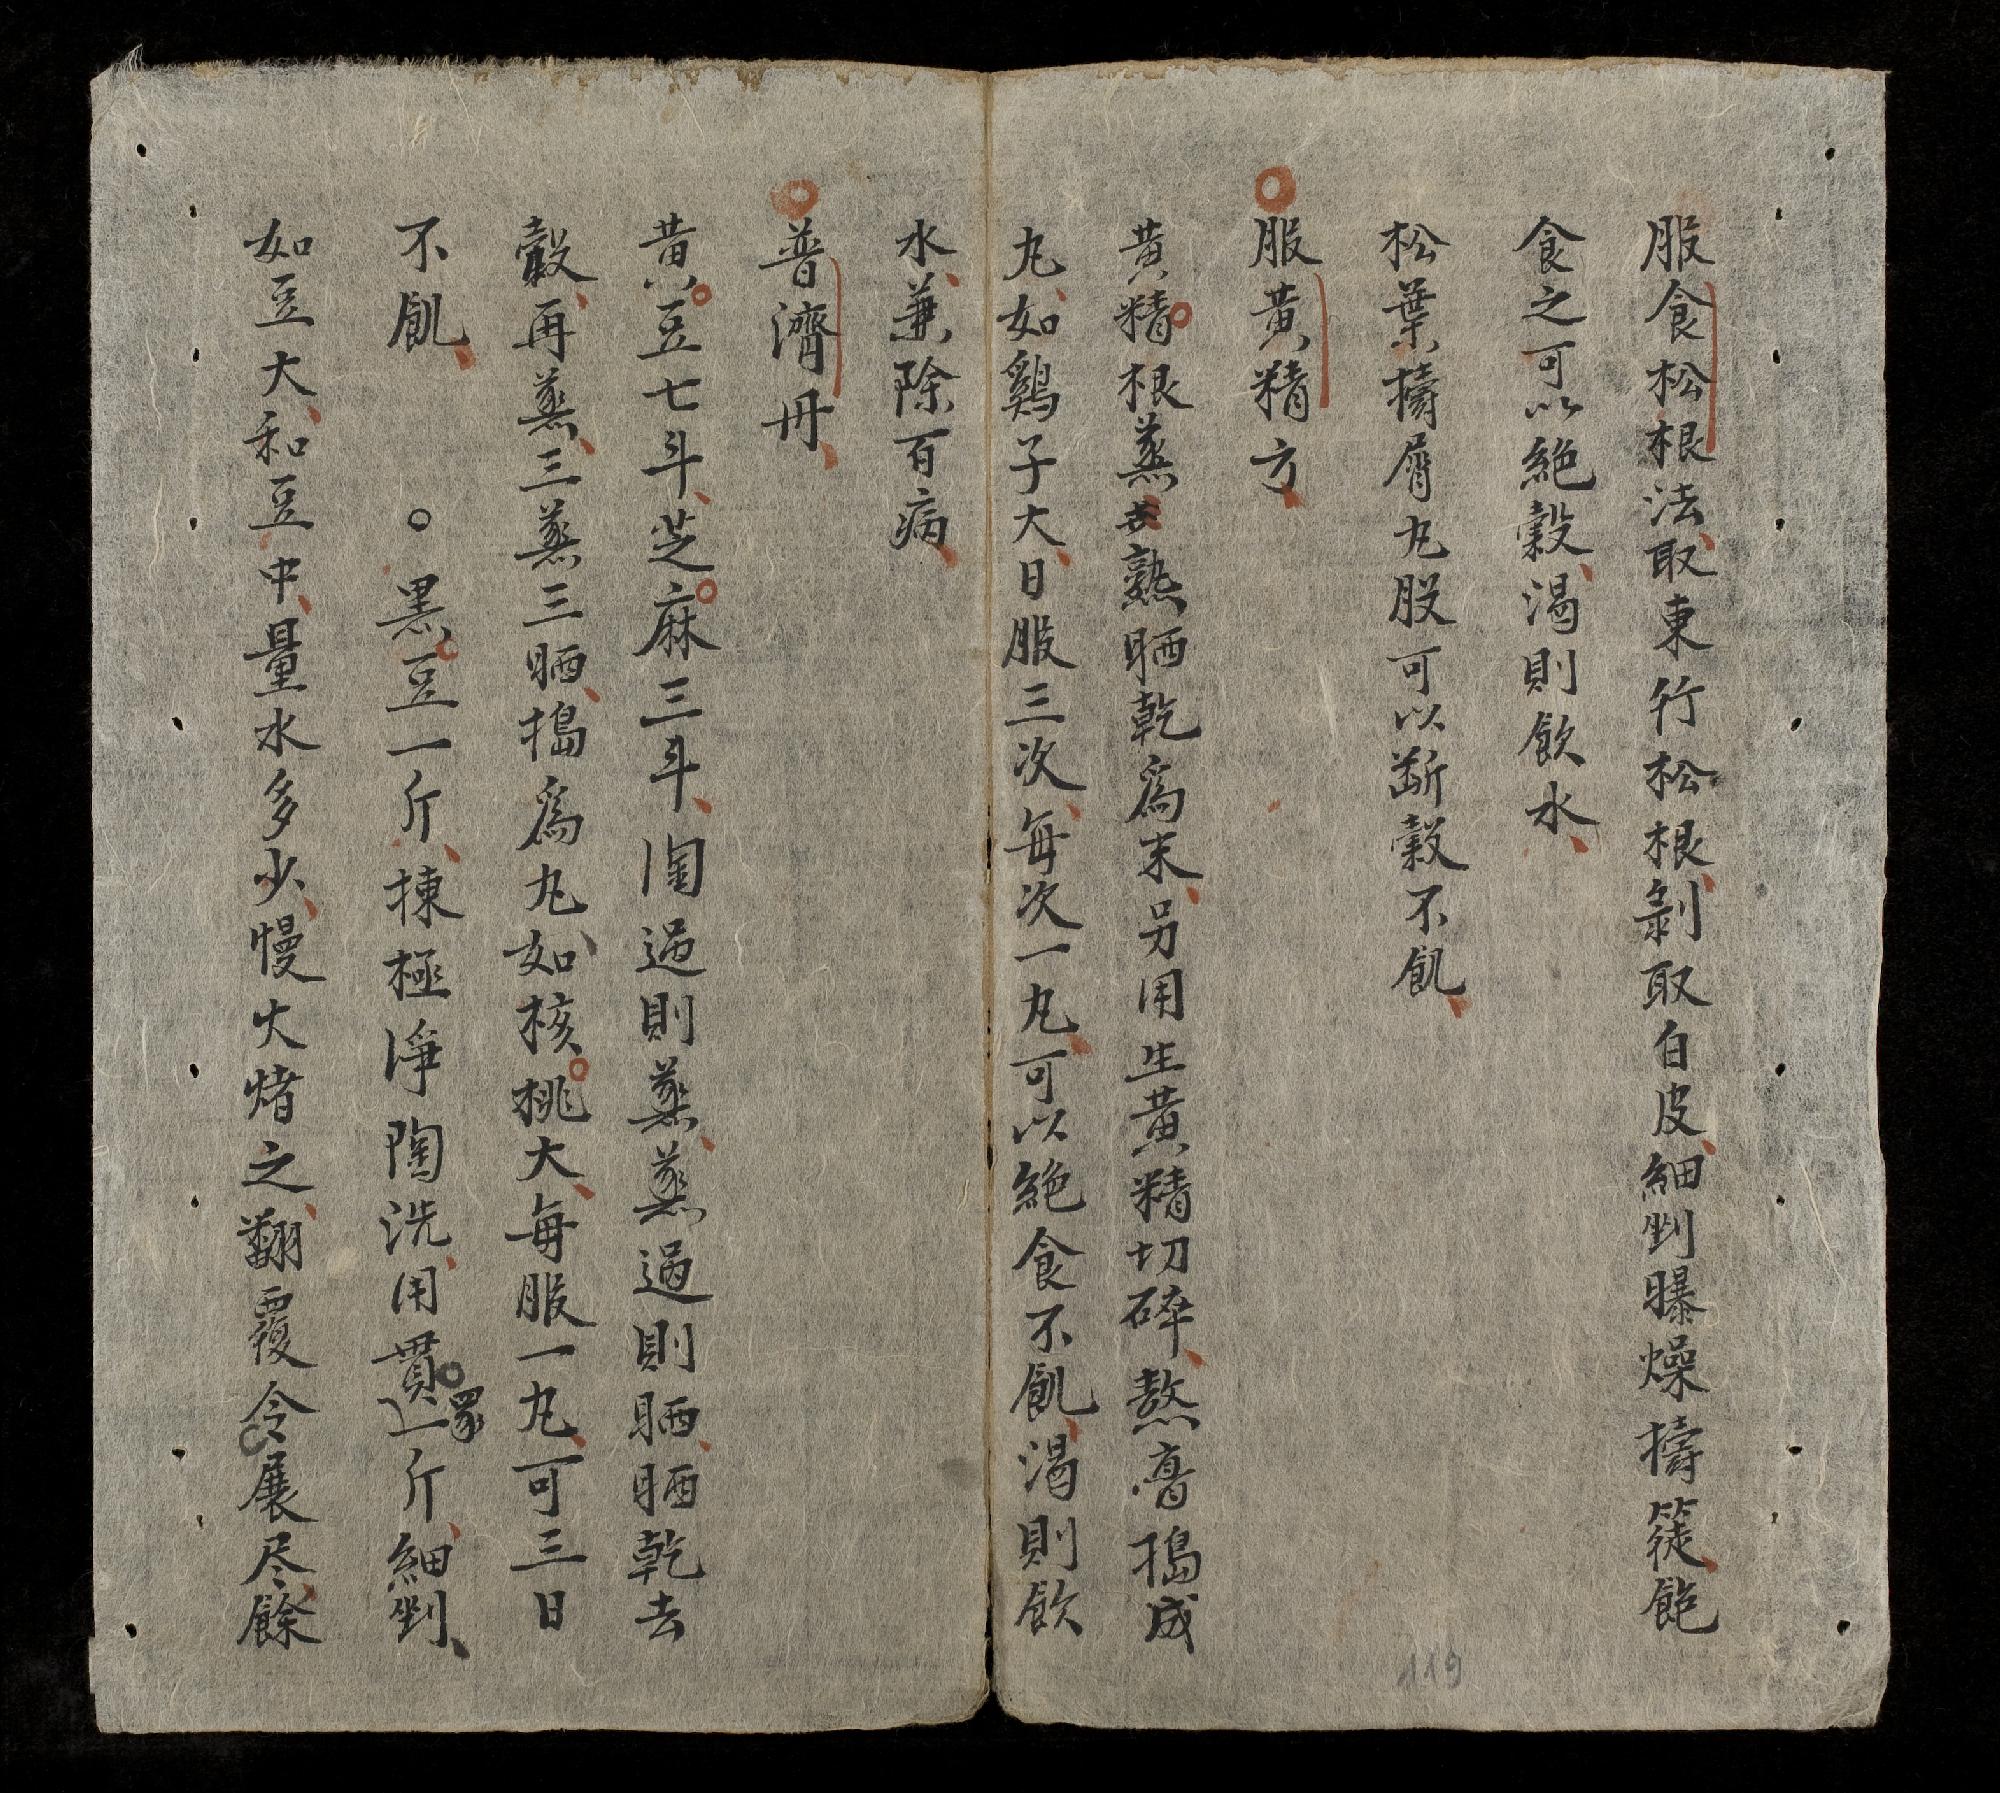 服食松根法取東行松根剝取白皮細剉曝燥擣簁飽
食之可以絶穀渴則飲水
松葉擣屑丸股可以断穀不飢
服黃精方
黄精根蒸熟晒乾為末另用生黄精切碎熬膏搗成
丸如鷄子大日服三次每次一丸可以絶食不飢渴則飲
水兼除百病
普濟丹
黃豆七斗芝麻三斗淘過則蒸蒸過則晒晒乾去
殼再蒸三蒸三晒搗為丸如核桃大每服一丸可三日
不飢 ○黑豆一斤揀極淨陶洗用貫眾一斤細剉
如豆大和豆中量水多少慢火煮之翻覆令展尽餘
119